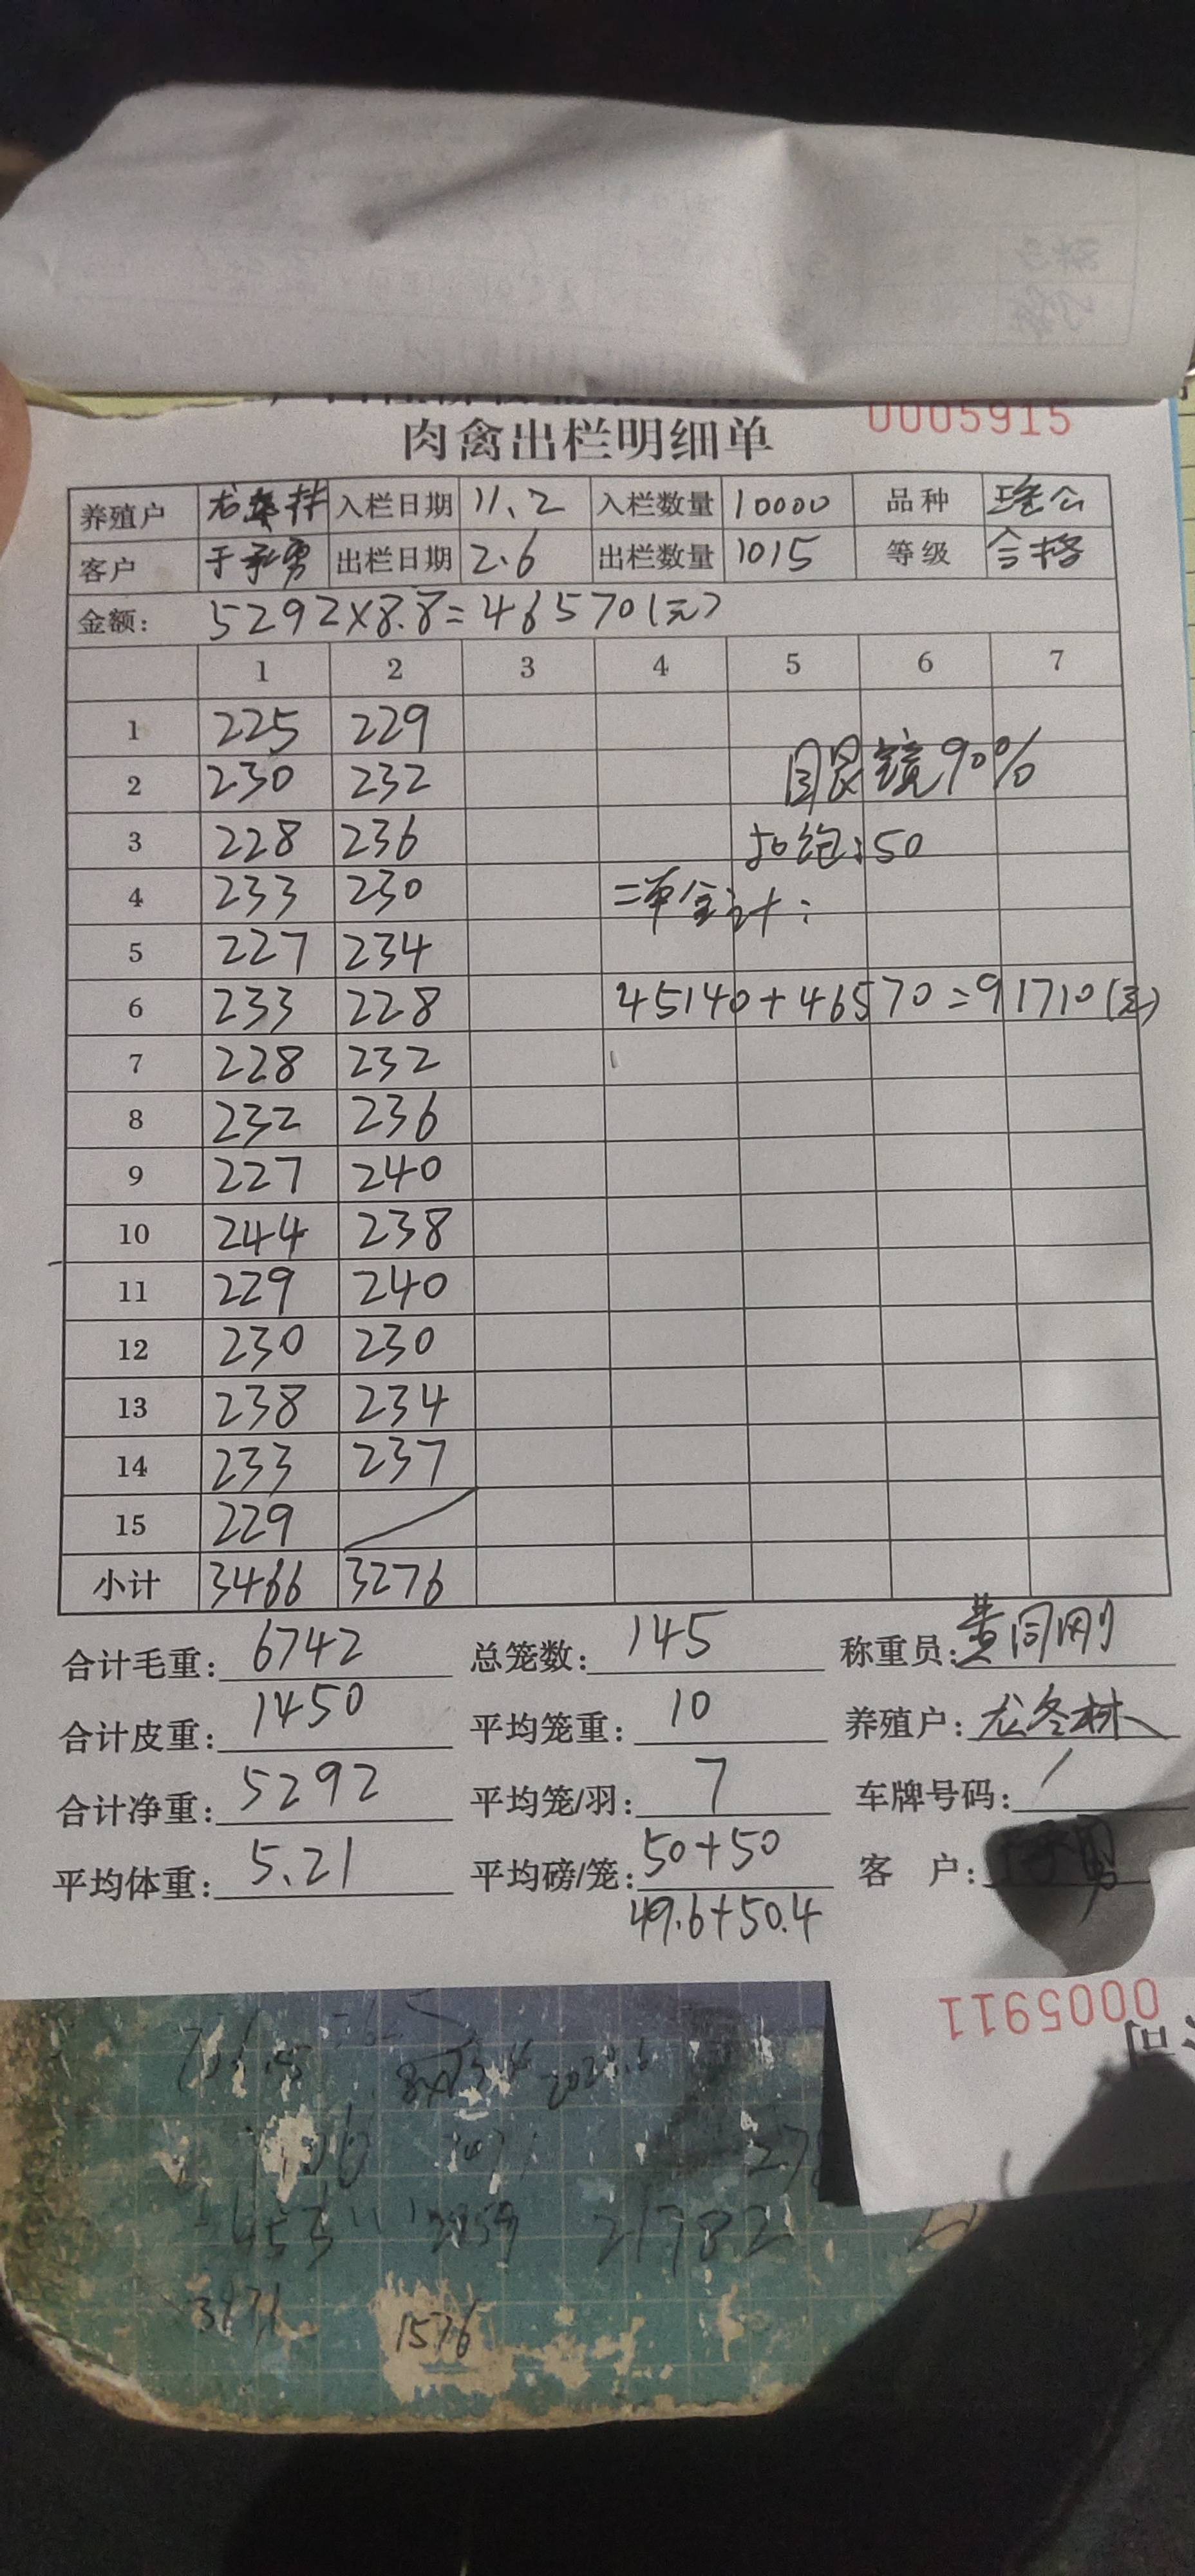 0005915
肉禽出栏明细单
养殖户 龙冬林 入栏日期 11.2 入栏数量 10000 品种 瑶公
客户 于承勇 出栏日期 2.6 出栏数量 1015 等级 合格
金额: 5292×8.8=46570(元)
1 2 3 4 5 6 7
1 225 229
2 230 232 眼镜90%
3 228 236 扣绝:50
4 233 230 二单合计:
5 227 234
6 233 228 45140+46570=91710(元)
7 228 232
8 232 236
9 227 240
10 244 238
11 229 240
12 230 230
13 238 234
14 233 237
15 229
小计 3466 3276
合计毛重: 6742 总笼数: 145 称重员: 黄同刚
合计皮重: 1450 平均笼重: 10 养殖户: 龙冬林
合计净重: 5292 平均笼/羽: 7 车牌号码: /
平均体重: 5.21 平均磅/笼: 50+50 客 户:
49.6+50.4
0005911
21782
1576